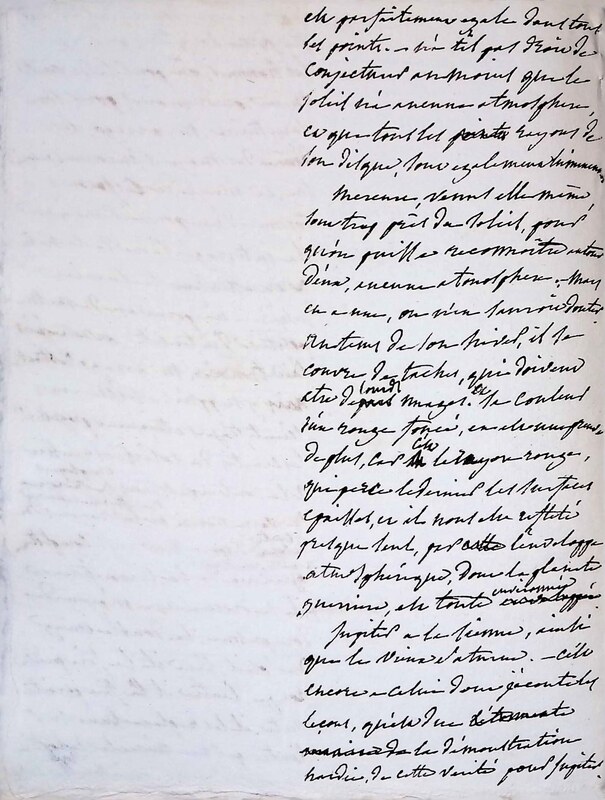 est parfaitement egale dans tous
les points. — n'a t'il pas droit de
conjecturer au moins que le
soleil n'a aucune atmosphere,
ce que tous les points rayons de
son disque, sont egalement lumineux
Mercure, Venus elle même,
sont trop près du Soleil, pour
qu'on puisse reconnoître autour
d'eux, aucune atmosphere. — Mars
en a une, on n'en sauroit douter
au tems de son hiver, il se
couvre de taches, qui doivent
etre de lourds nuages. et sa couleur
d'un rouge foncé, en est une preuve
de plus, car c'est le rayon rouge,
qui perce le dernier les surfaces
epaisses, et il nous est reflété
presque seul, par cette l'enveloppe
atmosphérique, dont la planete
guerriere, est toute environnée enveloppée
Jupiter a la sienne, ainsi
que le vieux Saturne. — c'est
encore a celui dont j'écoute les
leçons, qu'est due
la démonstration
hardie, de cette verité pour Jupiter